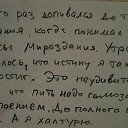 го раз допивался до т
ания, когда понимал
сы Мироздания. Утро
лось, что истину я так
остиг. Это неудиви
что пить надо самоза
оением. До полного п
А я халтурю.